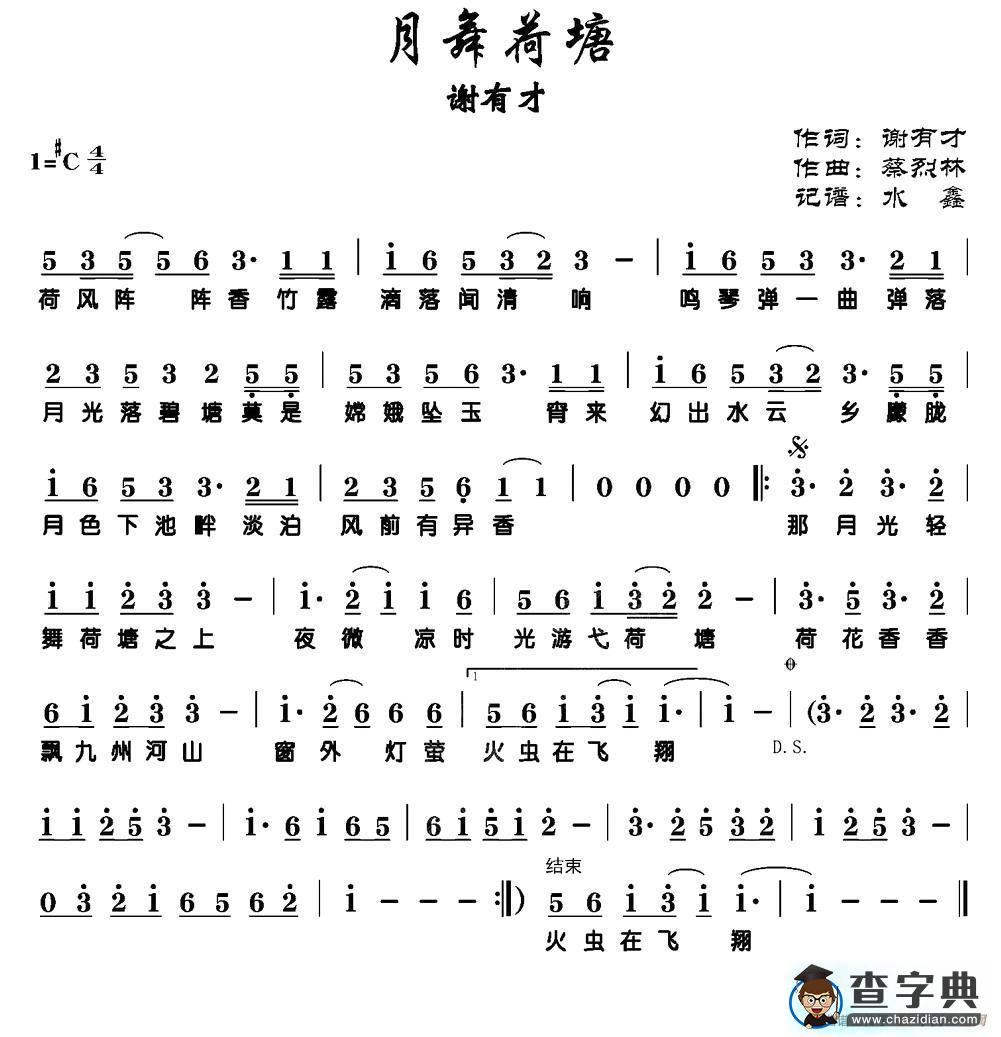 月舞荷塘
谢有才
1=#C 4/4
作词：谢有才
作曲：蔡烈林
记谱：水 鑫
5 3 5 5 6 3· 1 1 | i 6 5 3 2 3 – | i 6 5 3 3· 2 1 |
荷风阵 阵香竹露 滴落闻清 响 鸣琴弹一曲弹落
2 3 5 3 2 5 5 | 5 3 5 6 3· 1 1 | i 6 5 3 2 3· 5 5 |
月光落碧塘莫是 嫦娥坠玉 宵来 幻出水云 乡朦胧
i 6 5 3 3· 2 1 | 2 3 5 6 1 1 | 0 0 0 0 ‖: 3· 2 3· 2 |
月色下池畔淡泊 风前有异香 那月光轻
i i 2 3 3 – | i· 2 i i 6 | 5 6 i 3 2 2 – | 3· 5 3· 2 |
舞荷塘之上 夜微 凉时 光游弋荷 塘 荷花香香
1
6 i 2 3 3 – | i· 2 6 6 6 | 5 6 i 3 i i· | i – | (3· 2 3· 2 |
飘九州河山 窗外 灯萤 火虫在飞 翔 D.S.
i i 2 5 3 – | i· 6 i 6 5 | 6 i 5 i 2 – | 3· 2 5 3 2 | i 2 5 3 – |
结束
0 3 2 i 6 5 6 2 | i – – – :‖) 5 6 i 3 i i· | i – – – ‖
火虫在飞 翔
查字典
www.chazidian.com